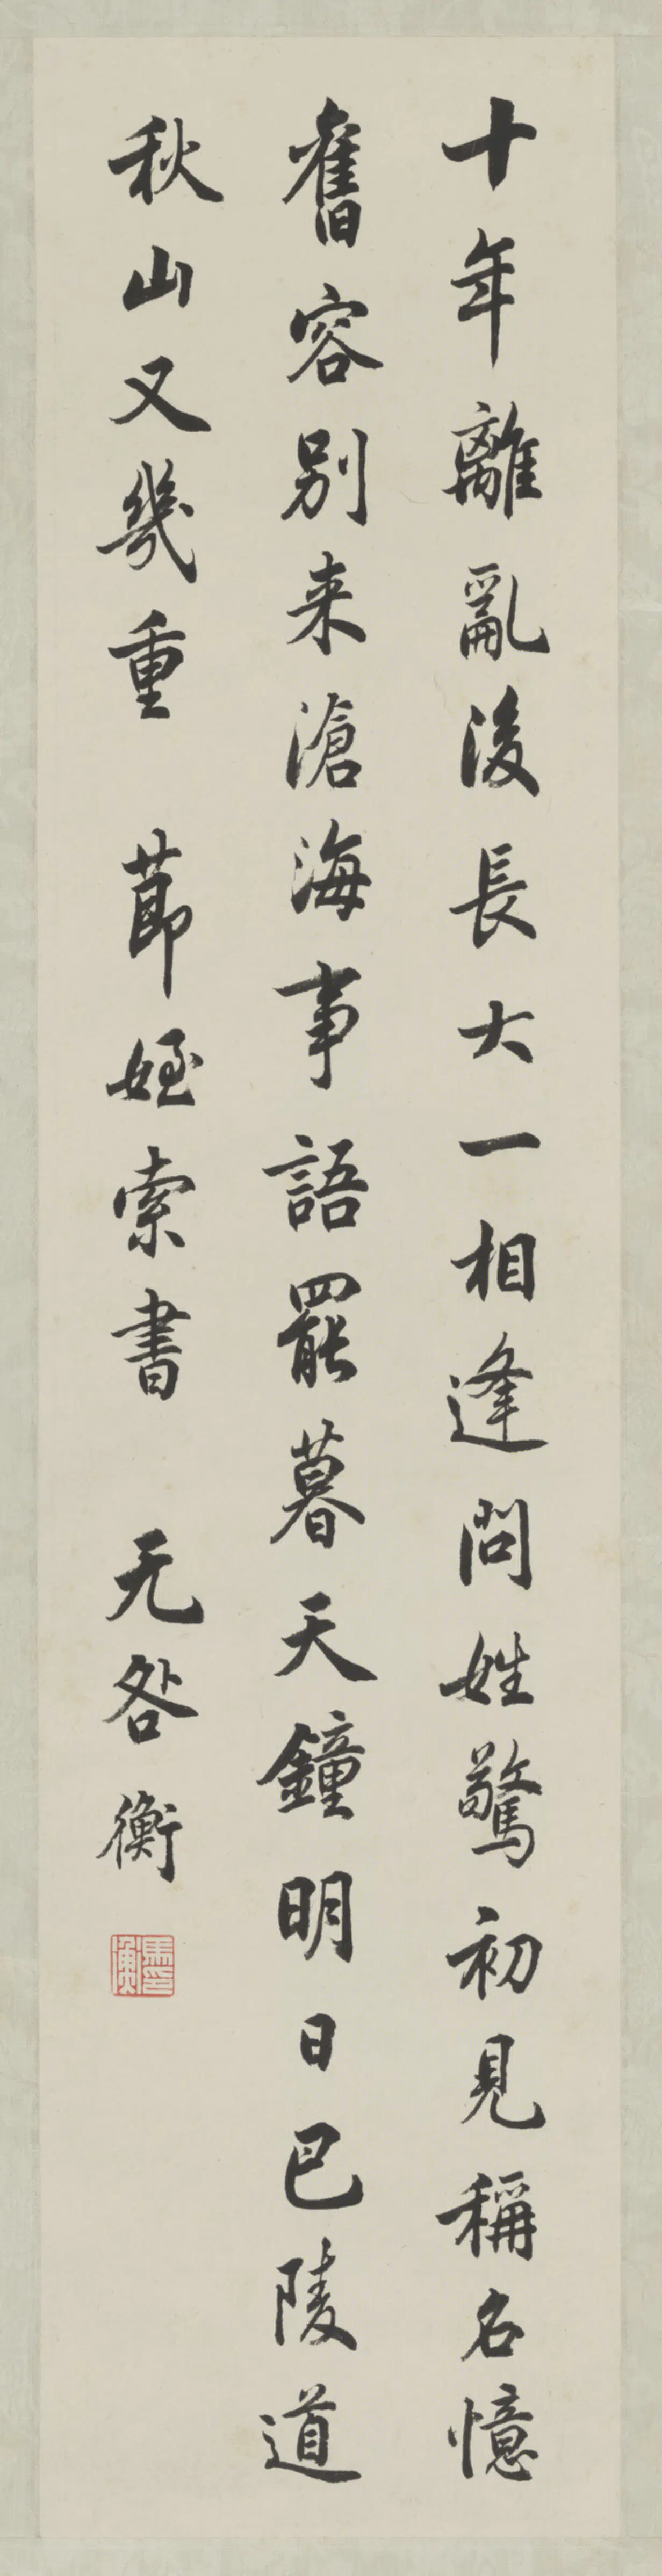 十年離亂後長大一相逢問姓驚初見稱名憶
舊容別来滄海事語罷暮天鐘明日巴陵道
秋山又幾重 莭姪索書 无咎衡
馬衡印